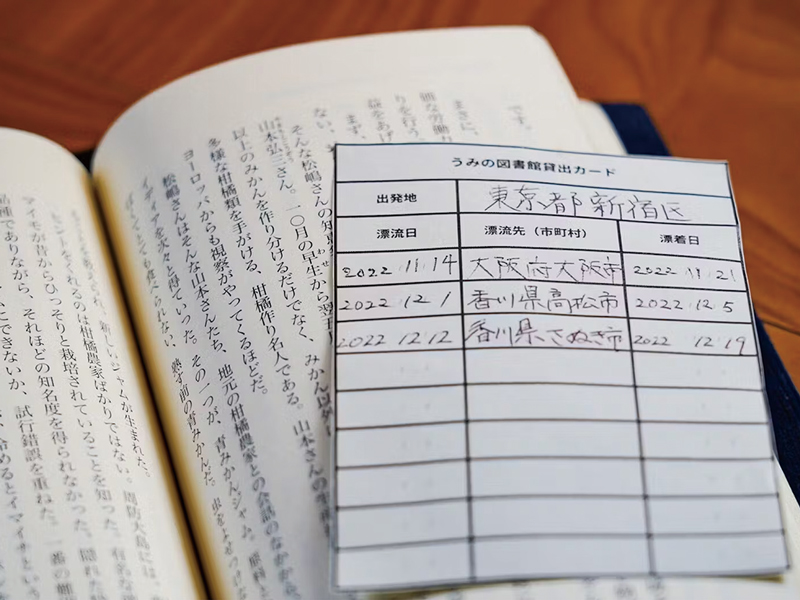 うみの図書館貸出カード
出発地 東京都新宿区
漂流日 漂流先（市町村） 漂着日
2022 11 14 大阪府大阪市 2022 11 21
2022 12 1 香川県高松市 2022 12 5
2022 12 12 香川県さぬき市 2022 12 19
です。
まさに、
な労働
りを行う
益をあげ
まず、
ない、
そんな松嶋さんの知恵
山本弘三さん。一〇月の早生から翌五
以上のみかんを作り分けるだけでなく、みかん以外
多様な柑橘類を手がける、柑橘作り名人である。山本さんの
ヨーロッパからも視察がやってくるほどだ。
松嶋さんはそんな山本さんたち、地元の柑橘農家との会話のなかから
イディアを次々と得ていった。その一つが、青みかんジャム。原料と
ぽくてとても食べられない、熟す前の青みかんだ。
新しいジャムが生まれた。
をくれるのは柑橘農家ばかりではない。周防大島には、
マイモが昔からひっそりと栽培されていることを知った。有名な
品種でありながら、それほどの知名度を得られなかった。隠れた
にできないか、試行錯誤を重ねた。一番の難
冷めるとイマイサという